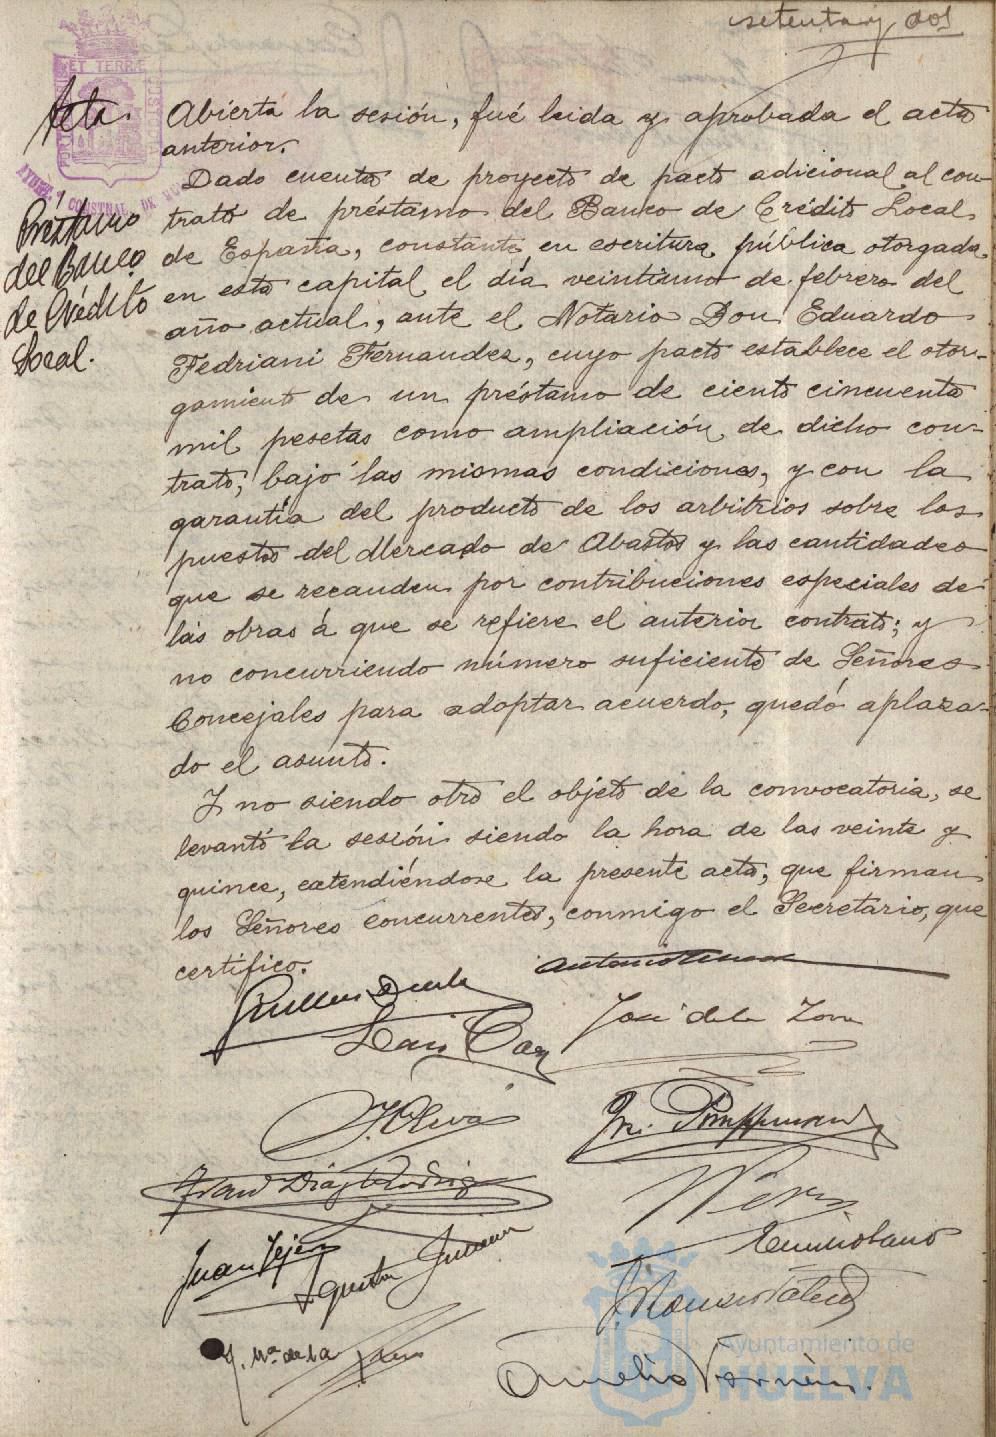 setenta y dos
Acta.
Abierta la sesión, fué leida y aprobada el acta
anterior.
Dado cuenta de proyecto de pacto adicional al con-
trato de préstamo del Banco de Crédito Local
de España, constante en escritura pública otorgada
en esta capital el día veintiuno de febrero del
año actual, ante el Notario Don Eduardo
Fedriani Fernandez, cuyo pacto establece el otor-
gamiento de un préstamo de ciento cincuenta
mil pesetas como ampliación de dicho con-
trato, bajo las mismas condiciones, y con la
garantía del producto de los arbitrios sobre los
puestos del Mercado de Abastos y las cantidades
que se recauden por contribuciones especiales de
las obras á que se refiere el anterior contrato; y
no concurriendo número suficiente de Señores
Concejales para adoptar acuerdo, quedó aplaza-
do el asunto.
Y no siendo otro el objeto de la convocatoria, se
levantó la sesión siendo la hora de las veinte y
quince, extendiéndose la presente acta, que firman
los Señores concurrentes, conmigo el Secretario, que
certifico.
Préstamo
del Banco
de Crédito
Local.
ET TERRÆ
José de la Zorra
J. Oliva
Franco Díaz Rodrig
Juan Tejero
Agustín Jimenez
J. Mª. de la
Aurelio
Ayuntamiento de
HUELVA